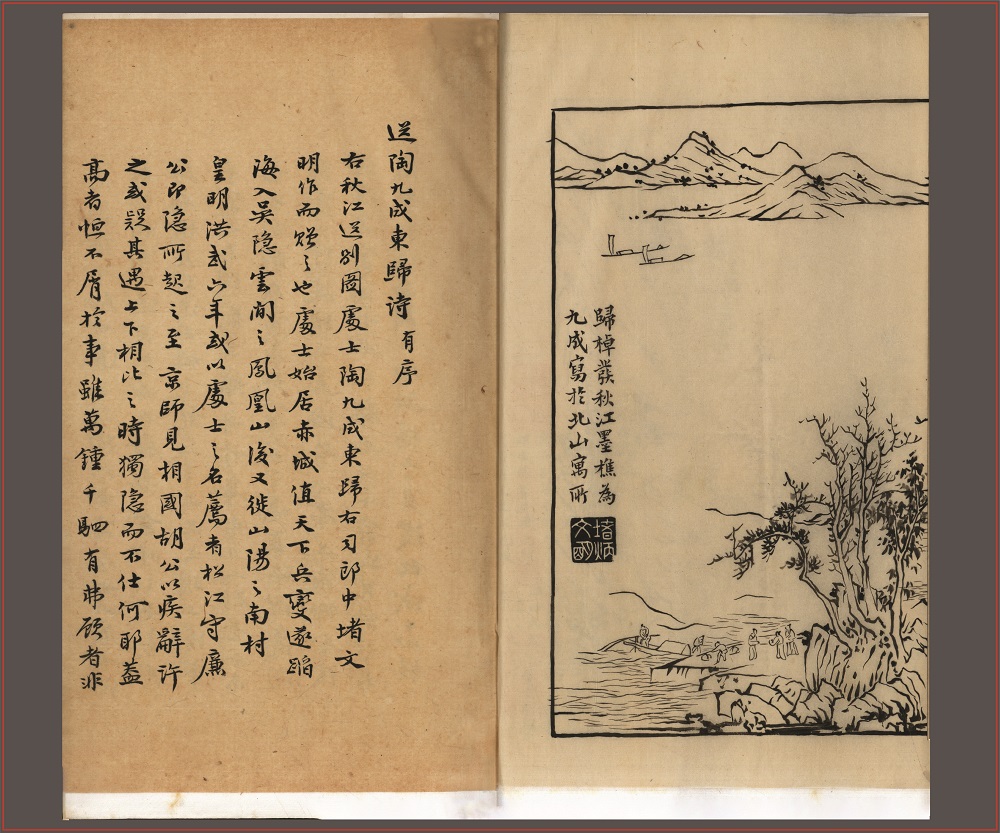 歸棹發秋江墨樵為
九成寫於北山寓所
堵炳
文明
送陶九成東歸詩 有序
右秋江送別圖處士陶九成東歸右司郎中堵文
明作而贈之也處士始居赤城值天下兵變遂蹈
海入吳隐雲間之鳳凰山後又徙山陽之南村
皇明洪武六年或以處士之名薦者松江守廉
公即隐所起之至京師見相國胡公以疾辭許
之或誤其遇上下相比之時獨隐而不仕何耶蓋
高者恒不屑於事雖萬鍾千駟有弗顧者非